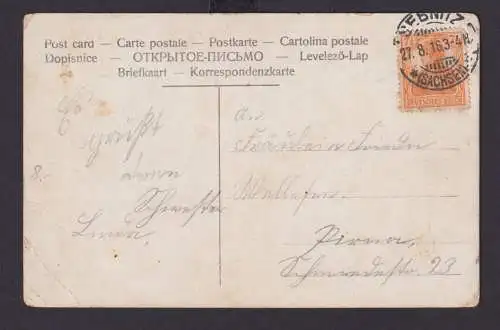 Post card – Carte postale – Postkarte – Cartolina postale
Dopisnice – ОТКРЫТОЕ-ПИСЬМО – Levelező-Lap
Briefkaart – Korrespondenzkarte
SEBNITZ
27.8.16.3-4N.
*(SACHSEN)*
Es
grüßt
deine
Schwester
Linda.
8.-
An
Fräulein Frieda
Pirna,
Schmiedestr. 23